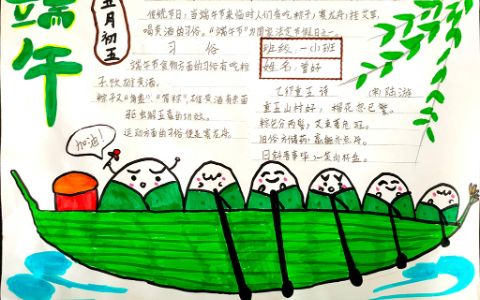 端午
五月初五
传统节日,当端午节来临时人们有吃粽子,赛龙舟,挂艾草,
喝黄酒的习俗。"端午节"为国家法定节假日之一。
习俗
端午节食物方面的习俗有吃粽
子,饮雄黄酒。
粽子又"角黍"、"筒粽",雄黄有杀菌
驱虫解五毒的功效。
运动方面的习俗便是赛龙舟。
班级:一小班
姓名:
乙卯重五诗 (南)陆游
重五山村好,榴花忽已繁。
粽包分两髻,艾束著危冠。
旧俗方储药,羸躯亦点丹。
日斜吾事毕,一笑向杯盘。
加油!